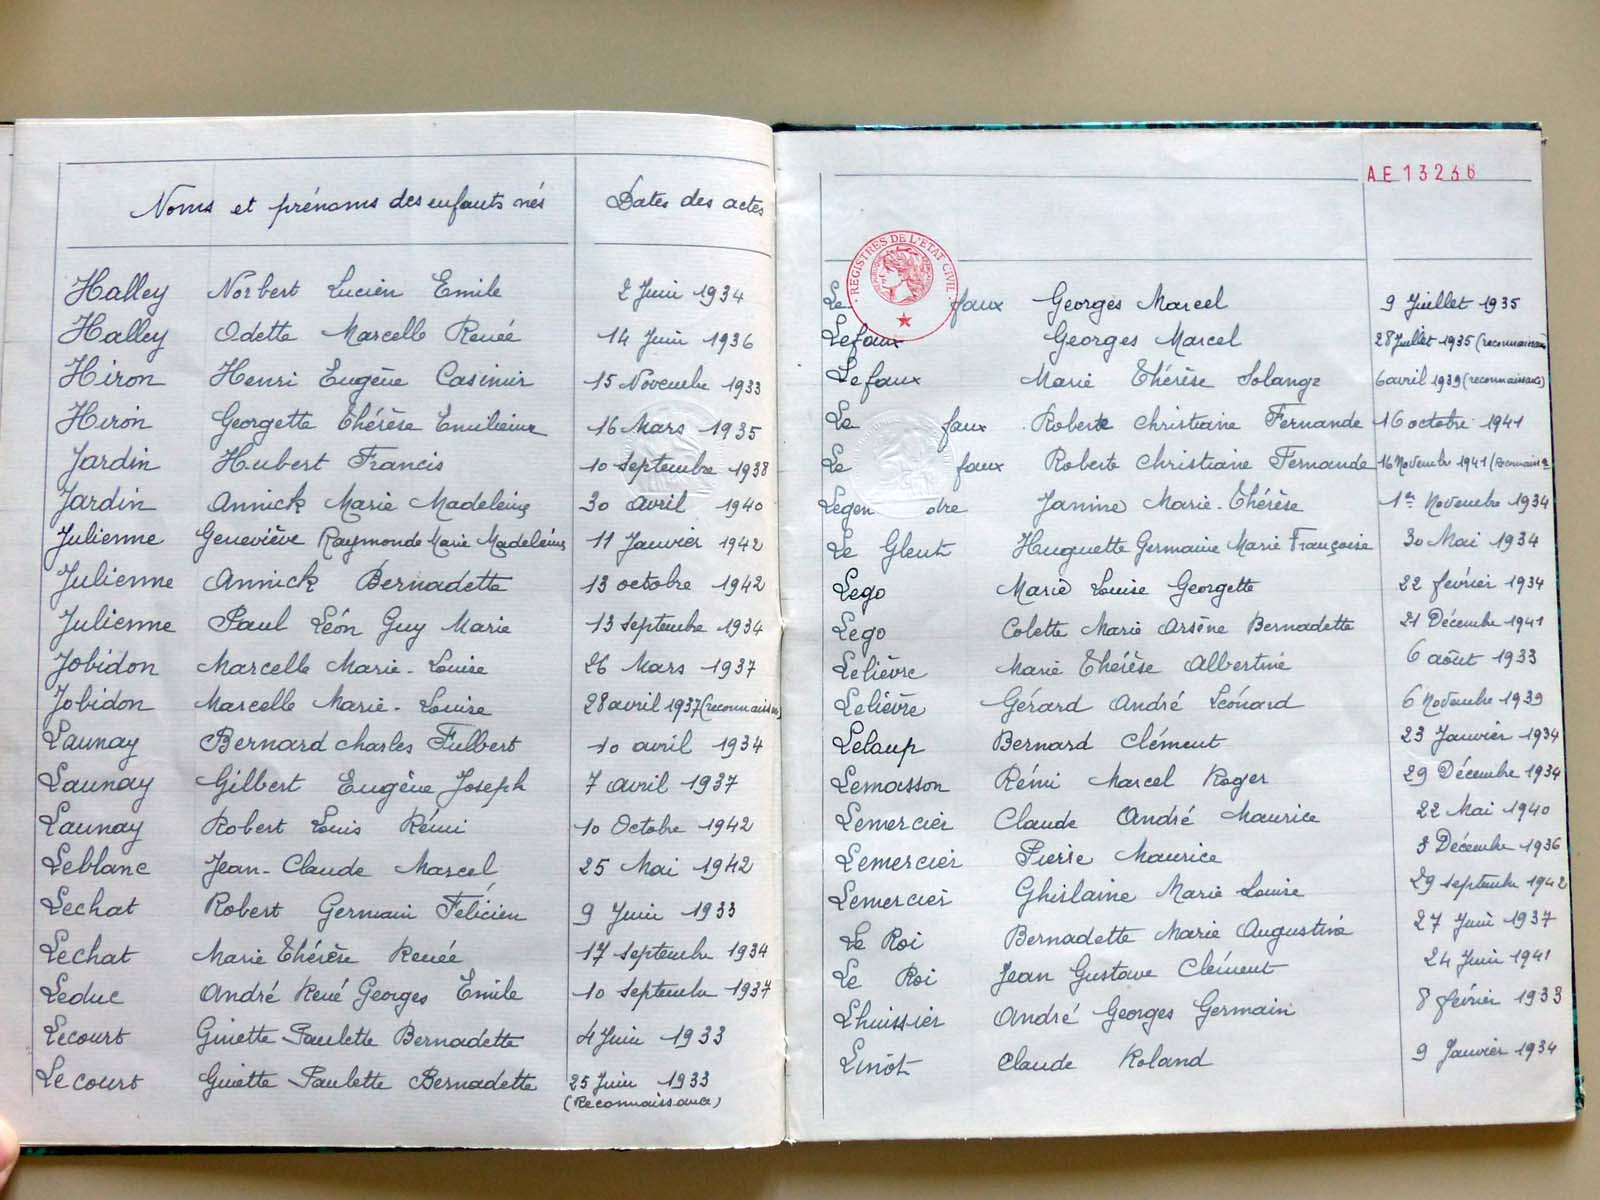 Noms et prénoms des enfants nés Dates des actes
Halley Norbert Lucien Emile 2 Juin 1934
Halley Odette Marcelle Renée 14 Juin 1936
Hiron Henri Eugène Casimir 15 Novembre 1933
Hiron Georgette Thérèse Emilienne 16 Mars 1935
Jardin Hubert Francis 10 septembre 1938
Jardin Annick Marie Madeleine 30 avril 1940
Julienne Geneviève Raymonde Marie Madeleine 11 Janvier 1942
Julienne Annick Bernadette 13 octobre 1942
Julienne Paul Léon Guy Marie 13 septembre 1934
Jobidon Marcelle Marie-Louise 26 Mars 1937
Jobidon Marcelle Marie-Louise 28 avril 1937 (reconnaissance)
Launay Bernard Charles Fulbert 10 avril 1934
Launay Gilbert Eugène Joseph 7 avril 1937
Launay Robert Louis Rémi 10 Octobre 1942
Leblanc Jean-Claude Marcel 25 Mai 1942
Lechat Robert Germain Félicien 9 Juin 1933
Lechat Marie Thérèse Renée 17 septembre 1934
Leduc André René Georges Emile 10 septembre 1937
Lecourt Ginette Paulette Bernadette 4 Juin 1933
Lecourt Ginette Paulette Bernadette 25 Juin 1933
(Reconnaissance)
AE13236
REGISTRES DE L'ETAT CIVIL
Le faux Georges Marcel 9 Juillet 1935
Lefaux Georges Marcel 28 Juillet 1935 (reconnaissance)
Lefaux Marie Thérèse Solange 6 avril 1939 (reconnaissance)
Le faux Roberte Christiane Fernande 16 octobre 1941
Le faux Roberte Christiane Fernande 16 Novembre 1941
Legen dre Janine Marie-Thérèse 1er Novembre 1934
Le Gleut Huguette Germaine Marie Françoise 30 Mai 1934
Lego Marie Louise Georgette 22 février 1934
Lego Colette Marie Arsène Bernadette 21 Décembre 1941
Lelièvre Marie Thérèse Albertine 6 août 1933
Lelièvre Gérard André Léonard 6 Novembre 1939
Leloup Bernard Clément 23 Janvier 1934
Lemasson Rémi Marcel Roger 29 Décembre 1934
Lemercier Claude André Maurice 22 Mai 1940
Lemercier Pierre Maurice 3 Décembre 1936
Lemercier Ghislaine Marie Louise 29 septembre 1942
Le Roi Bernadette Marie Augustine 27 Juin 1937
Le Roi Jean Gustave Clément 24 Juin 1941
Lhuissier André Georges Germain 8 février 1933
Linot Claude Roland 9 Janvier 1934